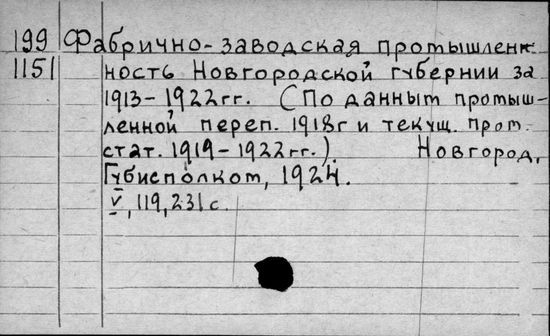 199 Фабрично-заводская промышлен-
1151 ность Новгородской губернии за
1913-1922гг. (По данным промыш-
ленной переп. 1918г и текущ. пром.
стат. 1919-1922гг.). Новгород,
Губисполком, 1924.
V, 119, 231 с.